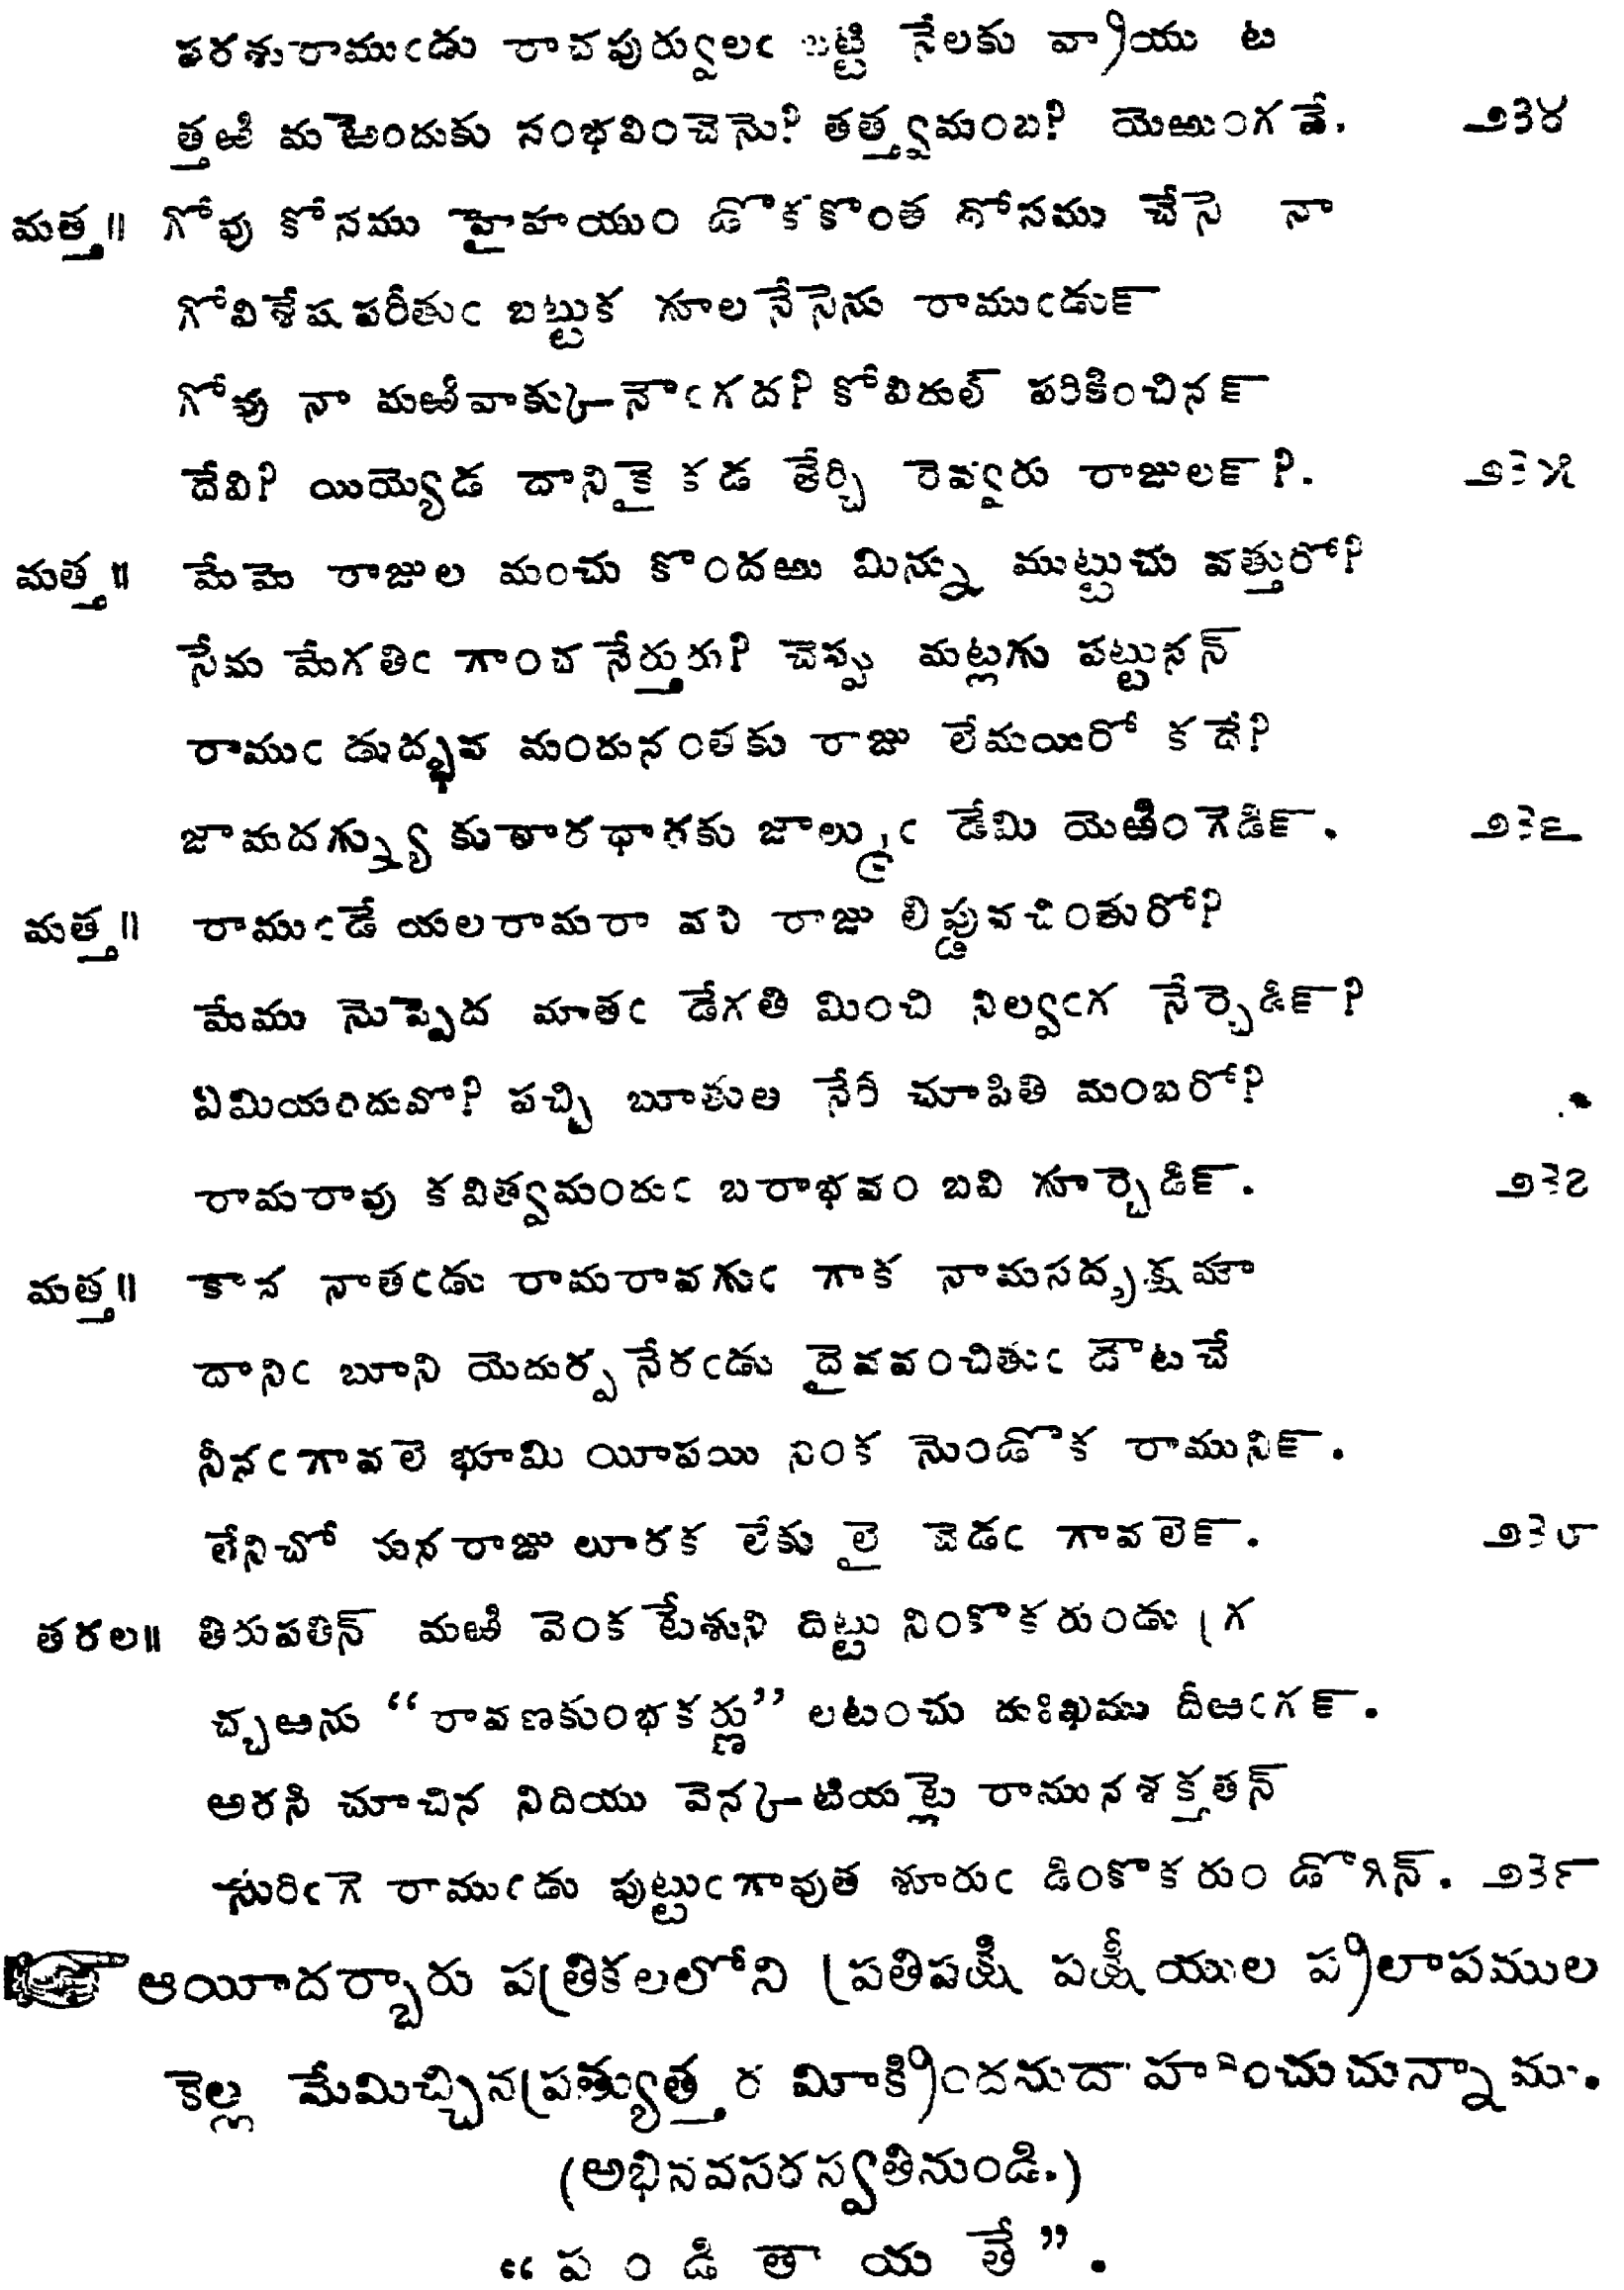 పరశురాముఁడు రాచపుర్వులఁ బట్టి నేలకు వ్రాయు ట
త్తఱి మఱెందుకు సంభవించెనొ? తత్త్వమంబ? యెఱుంగవే. ౨౩౪
మత్త॥ గోవు కోసము హైహయుం డొకకొంత దోసము చేసె నా
గోవిశేషపరీతుఁ బట్టుక గూలనేసెను రాముఁడుక్
గోవు నా మఱివాక్కునౌఁగద? కోవిదుల్ పరికించినక్
దేవి? యియ్యెడ దానికై కడ తేర్చి రెవ్వరు రాజులక్?. ౨౩౫
మత్త॥ మేమె రాజుల మంచు కొందఱు మిన్ను ముట్టుచు వత్తురో?
సేమ మేగతిఁ గాంచ నేర్తురు? చెప్పు మట్లగు పట్టునన్
రాముఁ డుద్భవ మందునంతకు రాజు లేమయిరో కదే?
జామదగ్న్యు కుఠారధారకు జాల్ముఁ డేమి యెఱింగెడిక్. ౨౩౬
మత్త॥ రాముఁడే యలరామరా వని రాజు లిప్డువచింతురో?
మేము నొప్పెద మాతఁ డేగతి మించి నిల్వఁగ నేర్చెడిక్?
ఏమియందువొ? పచ్చి బూతుల నేరి చూపితి మంబరో?
రామరావు కవిత్వమందుఁ బరాభవం బవి గూర్చెడిక్. ౨౩౭
మత్త॥ కాన నాతఁడు రామరావగుఁ గాక నామసదృక్షమౌ
దానిఁ బూని యెదుర్పనేరఁడు దైవవంచితుఁ డౌటచే
నీనఁగావలె భూమి యీపయి నింక నొండొక రామునిక్.
లేనిచో మనరాజు లూరక లేకు లై చెడఁ గావలెక్. ౨౩౮
తరల॥ తిరుపతిన్ మఱి వెంకటేశుని దిట్టు నింకొకరుండు గ్ర
చ్చఱను “రావణకుంభకర్ణు” లటంచు దుఃఖము దీఱఁగక్.
అరసి చూచిన నిదియు వెనక్కటియట్లె రామునశక్తతన్
సురిఁగె రాముఁడు పుట్టుఁగావుత శూరుఁ డింకొకరుం డొగిన్. ౨౩౯
☞ ఆయీదర్బారు పత్రికలలోని ప్రతిపక్షి పక్షీయుల ప్రలాపముల
కెల్ల మేమిచ్చినప్రత్యుత్తర మీక్రిందనుదాహరించుచున్నాము.
(అభినవసరస్వతినుండి.)
“పండితాయతే”.